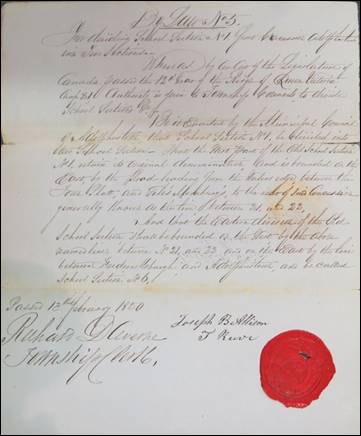 By Law No 5.
For dividing School Section No 1 first Concession Adolphustown
into Two Sections.
Whereas by an Act of the Legislature of
Canada passed the 12th Year of the Reign of Queen Victoria
Chap 81 Authority is given to Township Councils to divide
School Sections &c
Be it Enacted by the Municipal Council
of Adolphustown that School Section No 1, be divided into
two School Sections. That the West Part of the Old School Section
No 1 retain its original and is bounded on the
East by the Road leading from the between the
to the of
generally known as the line between 21, and 22,
And that the Eastern division of the Old
School Section shall be bounded on the West by the above
named line between No 21, and 22 and on the East by the line
between Fredericksburgh and Adolphustown, and be called
School Section No 6,
Passed 12th February 1850
Joseph B Allison
T Reeve
Richard D
Township Clerk,